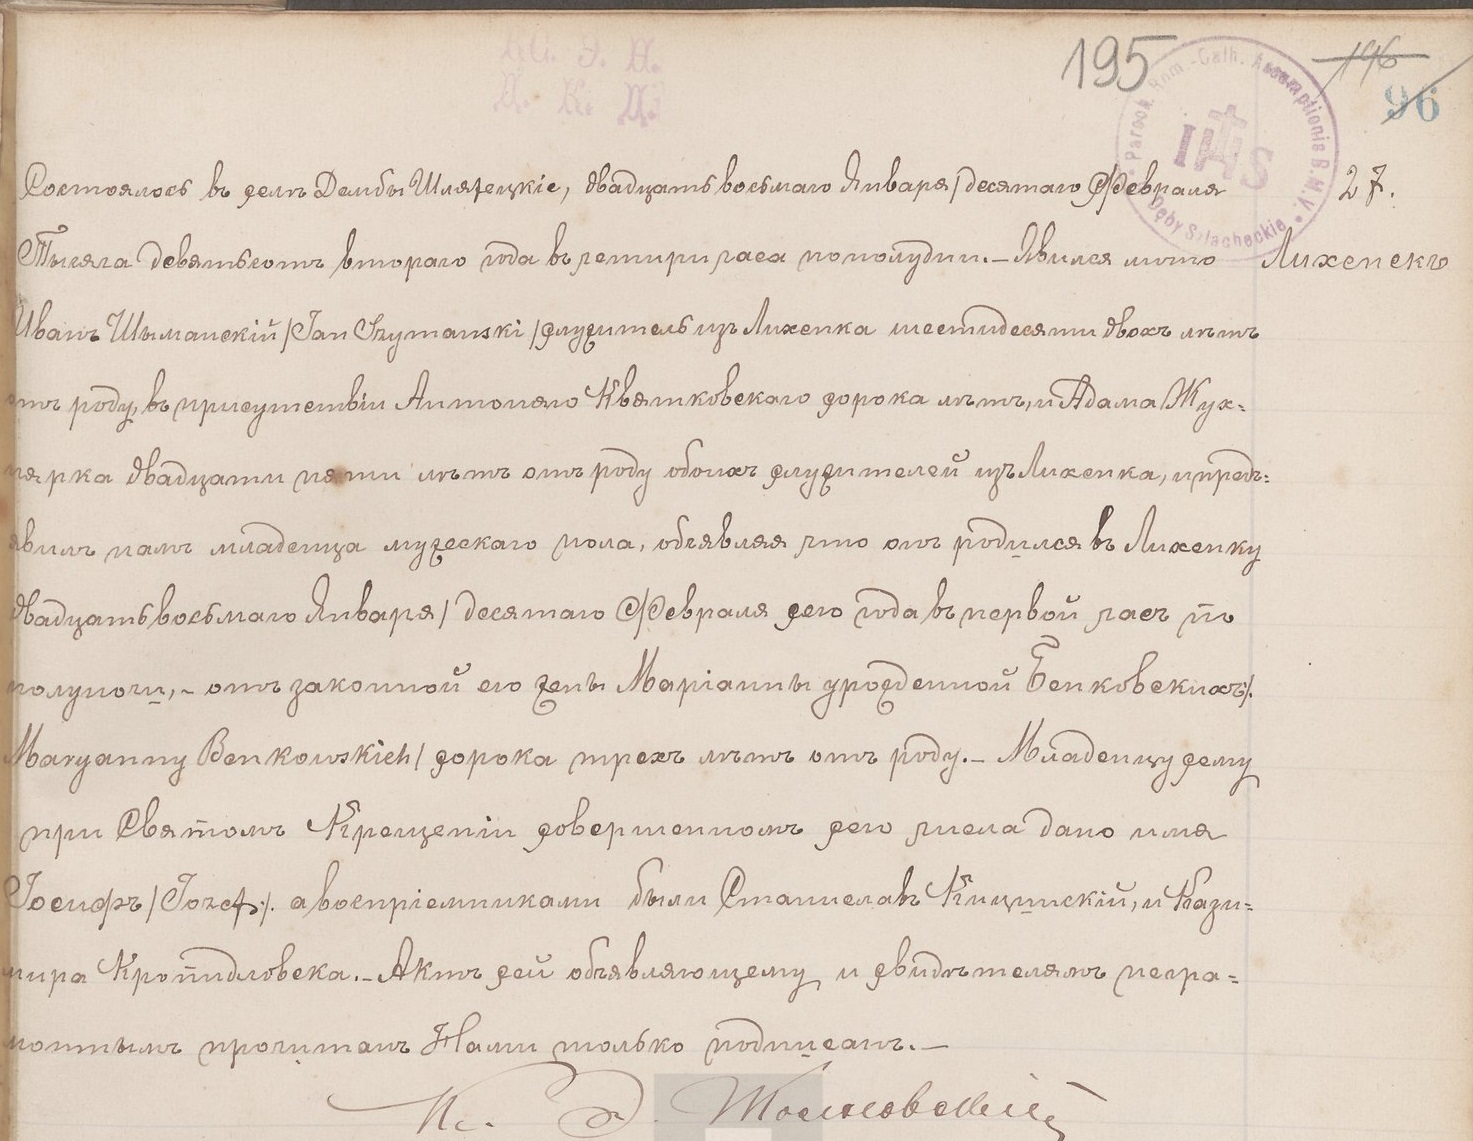 195
196
96
Paroch. Rom.-Cath. Assumptionis B.M.V. * Dęby Szlacheckie
IHS
27.
Лихенекъ
Состоялось въ селѣ Дембы Шляхецкіе, двадцать восьмаго Января/десятаго Февраля
Тысяча девятьсотъ втораго года въ четыри часа пополудни.— Явился лично
Иванъ Шыманскій /Jan Szymanski/ служитель изъ Лихенка шестидесяти двохъ лѣтъ
отъ роду, въ присутствіи Антоняго Квятковскаго сорока лѣтъ, и Адама Жух=
нярка двадцати пяти лѣтъ отъ роду обоихъ служителей изъ Лихенка, и предъ=
явилъ намъ младенца мужескаго пола, объявляя что онъ родился въ Лихенку
двадцать восьмаго Января/десятаго Февраля сего года въ первой часъ по
полуночи,– отъ законной его жены Маріанны урожденной Бенковскихъ/.
Maryanny Benkowskich/ сорока трехъ лѣтъ отъ роду.– Младенцу сему
при Святомъ Крещеніи совершенномъ сего числа дано имя
Іосифъ /Józef/. а воспріемниками были Станиславъ Кицинскій, и Кази=
мира Кропидловска.– Актъ сей объявляющему и свидѣтелямъ негра=
мотнымъ прочитанъ Нами только подписанъ.—
Кс.